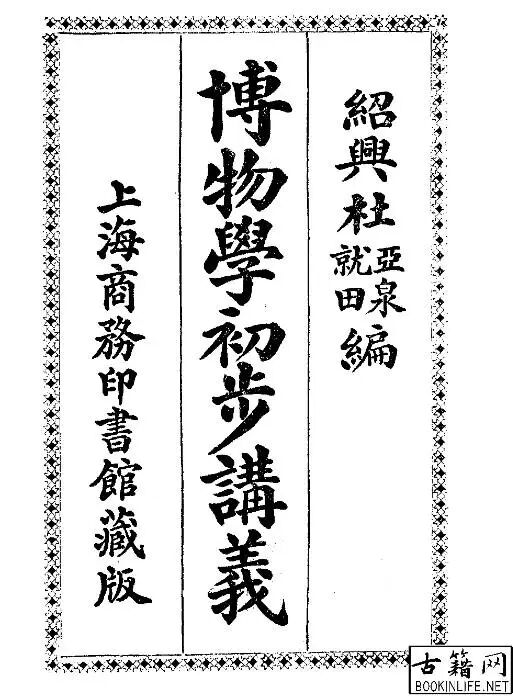 紹興杜亞泉就田編
博物學初步講義
上海商務印書館藏版
古籍网
BOOKINLIFE.NET